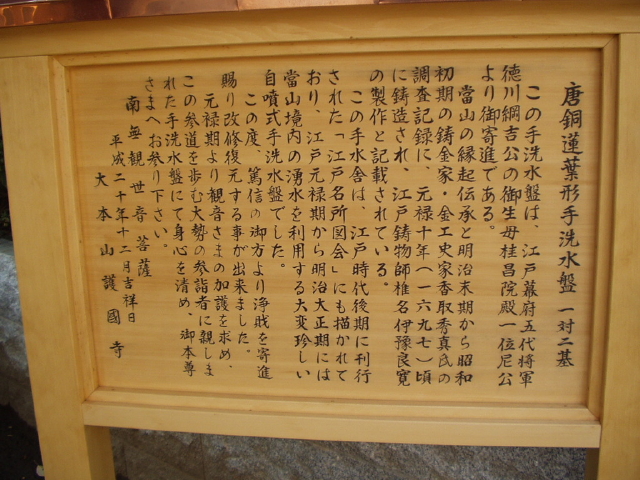 唐銅蓮葉形手洗水盤 一対二基
この手洗水盤は、江戸幕府五代将軍
徳川綱吉公の御生母桂昌院殿一位尼公
より御寄進である。
當山の縁起伝承と明治末期から昭和
初期の鋳金家・金工史家香取秀真氏の
調査記録に、元禄十年(一六九七)頃
に鋳造され、江戸鋳物師椎名伊豫良寛
の製作と記載されている。
この手水舎は、江戸時代後期に刊行
された「江戸名所図会」にも描かれて
おり、江戸元禄期から明治大正期には
當山境内の湧水を利用する大変珍しい
自噴式手洗水盤でした。
この度、篤信の御方より浄財を寄進
賜り改修復元する事が出来ました。
元禄期より観音さまの加護を求め、
この参道を歩む大勢の参詣者に親しま
れた手洗水盤にて身心を清め、御本尊
さまへお参り下さい。
南無觀世音菩薩
平成二十年十二月吉祥日
大本山護國寺